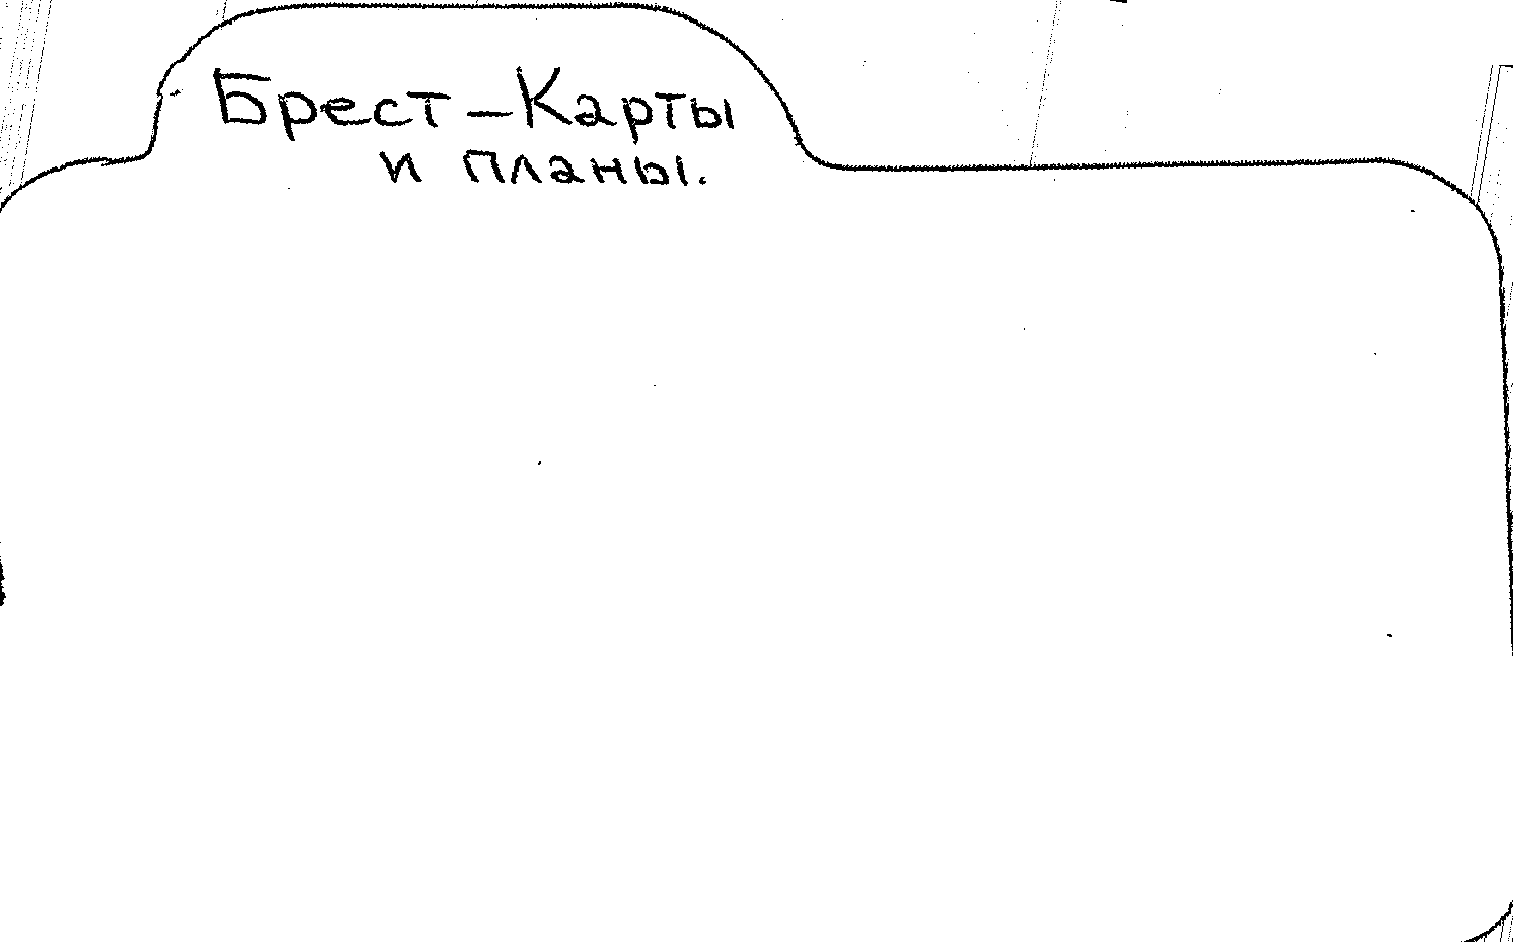 Брест – Карты
и планы.